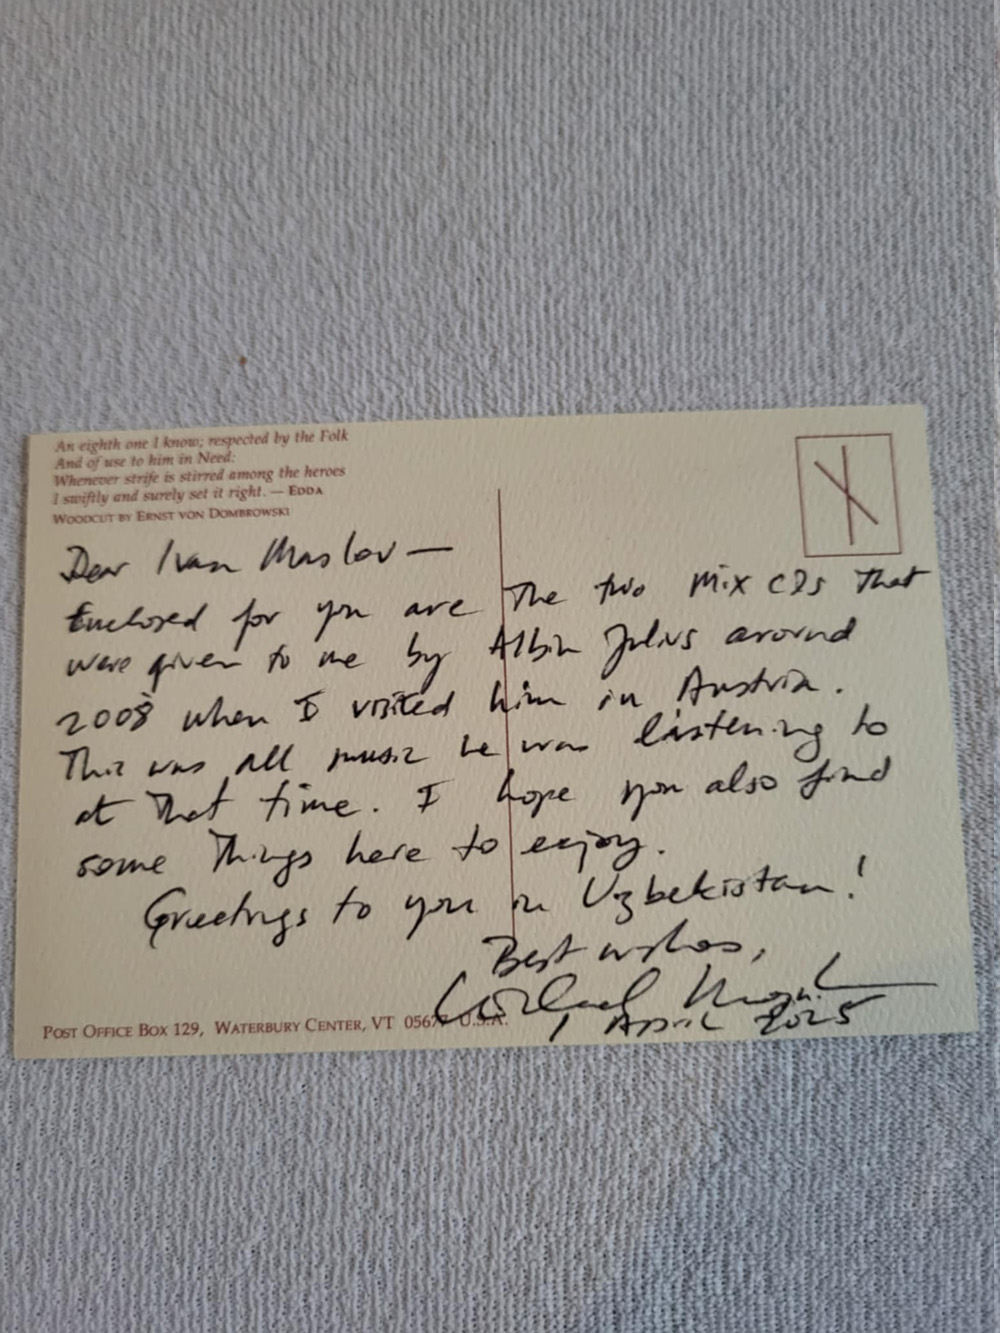 An eighth one I know; respected by the Folk
And of use to him in Need:
Whenever strife is stirred among the heroes
I swiftly and surely set it right. — EDDA
WOODCUT BY ERNST VON DOMBROWSKI
Dear Ivan Maslov —
Enclosed for you are the two mix CDs that
were given to me by Albin Julius around
2008 when I visited him in Austria.
This was all music he was listening to
at that time. I hope you also find
some things here to enjoy.
Greetings to you in Uzbekistan!
Best wishes,
1 April 2025
POST OFFICE BOX 129, WATERBURY CENTER, VT U.S.A.